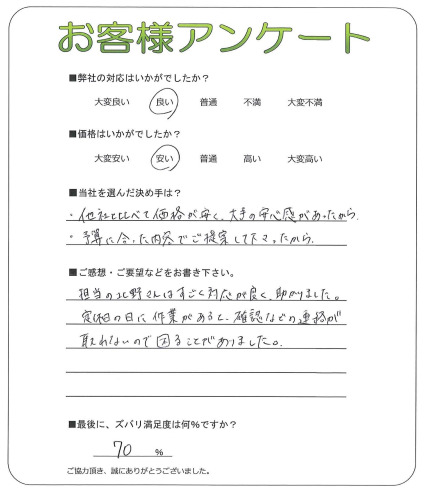 お客様アンケート
■弊社の対応はいかがでしたか？
大変良い 良い 普通 不満 大変不満
■価格はいかがでしたか？
大変安い 安い 普通 高い 大変高い
■当社を選んだ決め手は？
・他社と比べて価格が安く、大手の安心感があったから
・予算に合った内容でご提案して下さったから。
■ご感想・ご要望などをお書き下さい。
担当の北野さんはすごく対応が良く、助かりました。
定休の日に作業があると、確認などの連絡が
取れないので困ることがありました。
■最後に、ズバリ満足度は何％ですか？
70 ％
ご協力頂き、誠にありがとうございました。